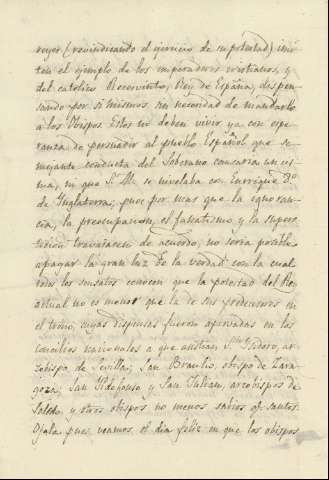 reyes (revindicando el ejercicio de su potestad) imi-
ten el exemplo de los emperadores cristianos, y
del catolico Recesvinto, Rey de España, dispen-
sando por si mismos sin necesidad de mandarlo
a los Obispos. Estos no deben vivir ya con espe-
ranza de persuadir al pueblo Español que se-
mejante conducta del Soberano causaria un cis-
ma, ni que S. M. se nivelaba con Enrrique 8º
de Inglaterra; pues por mas que la ignoran-
cia, la preocupacion, el fanatismo y la supers-
ticion trabajasen de acuerdo, no seria posible
apagar la gran luz de la verdad con la cual
todos los sensatos conocen que la potestad del Rey
actual no es menor que la de sus predecesores en
el trono, cuyas dispensas fueron aprovadas en los
concilios nacionales a que asistian Sn. Isidoro, ar-
zobispo de Sevilla; San Braulio, obispo de Zara-
goza; San Ildefonso y San Julian, arzobispos de
Toledo y otros obispos no menos sabios y santos.
Ojala pues veamos el dia feliz en que los obispos